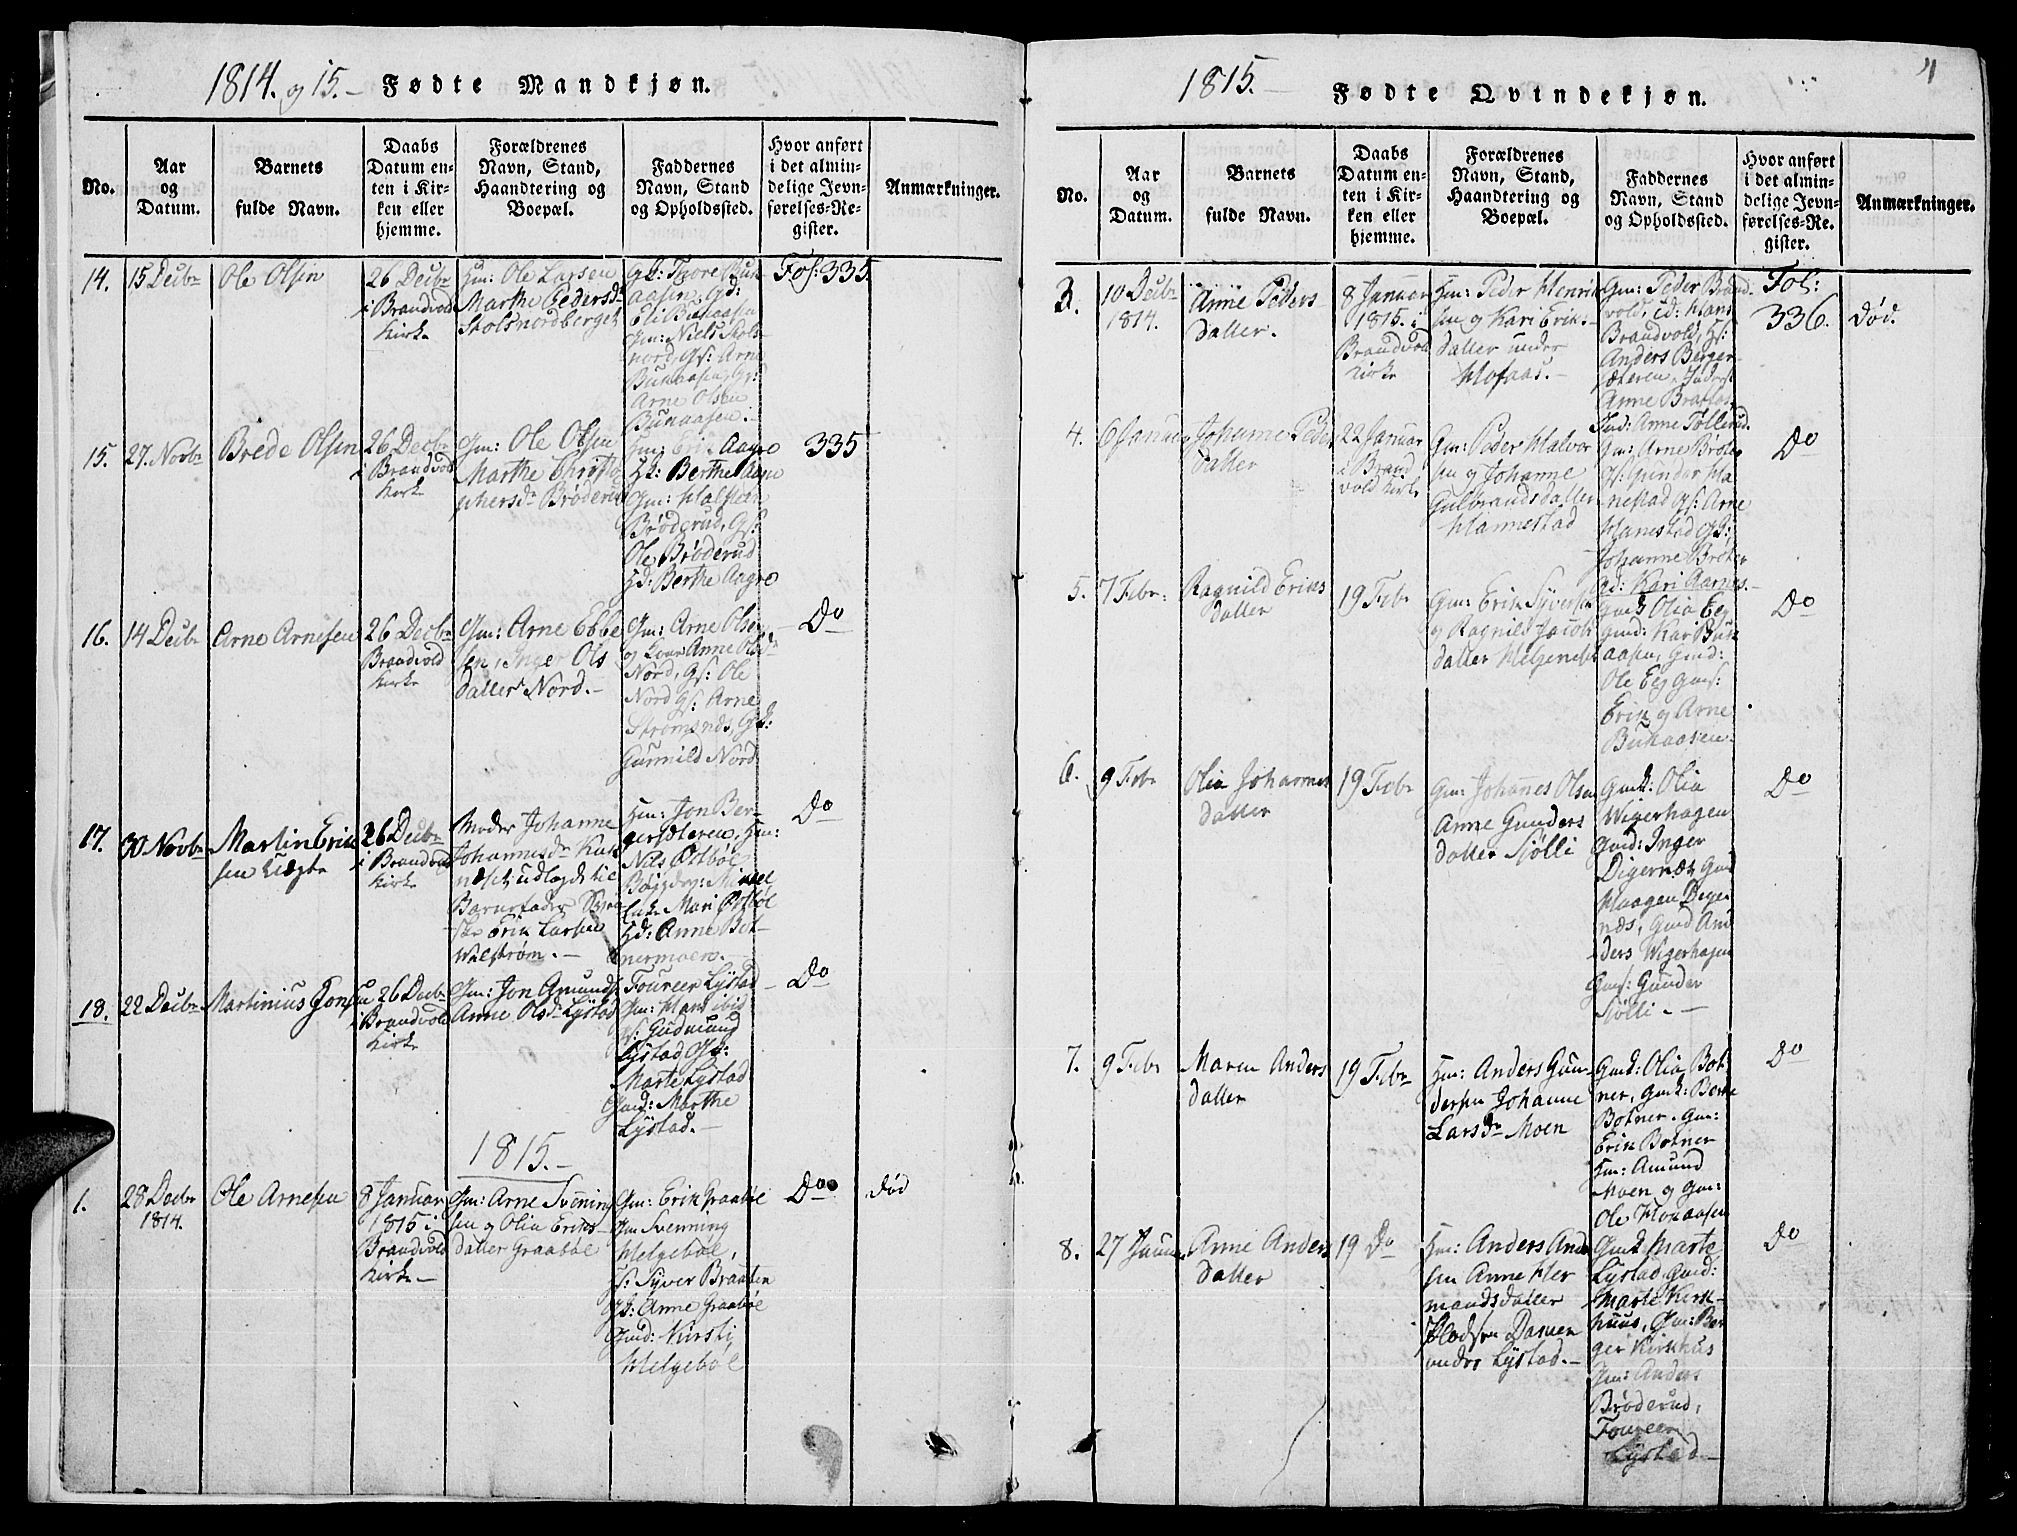 1814. og 15. – Fødte Mandkjøn.
No.
Aar
og
Datum.
Barnets
fulde Navn.
Daabs
Datum en-
ten i Kir-
ken eller
hjemme.
Forældrenes
Navn, Stand,
Haandtering og
Boepæl.
Faddernes
Navn, Stand
og Opholdssted.
Hvor anført
i det almin-
delige Jevn-
førelses-Re-
gister.
Anmærkninger.
14.
15 Decbr
Ole Olsen
26 Decbr
i Brandvold
Kirke
Hm: Ole Larsen
Marthe Pedersdr
Stolsnordberget
Gk: Tore Buk
aasen, Gd:
Eli Bukaasen
Gm: Niels Stols-
nord, Gs: Arne
Bukaasen, Gs:
Arne Olsen
Bukaasen.
Fol: 335
15.
27. Novbr
Brede Olsen
26 Decbr
i Brandvold
Kirke
Gm: Ole Olsen
Marthe Christo
phersdr Brøderud
Hm: Eric Aagre
Hk: Berthe Aagre
Gm: Halsteen
Brøderud, Gs:
Ole Brøderud
Hd: Berthe Aagre
335
16.
14 Decbr
Arne Arnesen
26 Decbr
Brandvold
Kirke
Gm: Arne Ebbe
sen, Inger Ols
datter Nord. –
Gm: Arne Olsen
og Kone Anne Olsdr
Nord, Gs: Ole
Nord Gs: Arne
Strømsnes, Gk:
Gunnild Nord
Do
17.
30 Novbr
Martin Erik
sen Uægte
26 Decbr
i Brandvold
Kirke
Moder Johanne
Johannesdr
udlagde til
Barnefader
Erik Larsen
Walstrøm. –
Hm: Jon Ber-
gersæteren, Hm:
Nils Østbøl
Enke Mari Østbøl
Hd: Anne Bot-
nermoen. –
Do
18.
22 Decbr
Martinius Jon
sen
26 Decbr
i Brandvold
Kirke
Gm: Jon Gmunds
Anne Olsdr Lystad
Foureer Lystad
Gm: Hans ibid
Gs: Gudmund
Lystad Gk:
Marte Lystad
Gmd: Marthe
Lystad. –
Do
1815. –
1.
28 Decbr
1814.
Ole Arnesen
8 Januar
1815 i
Brandvold
Kirke –
Gm: Arne Svening
sen og Olia Eriks-
datter Graabøl
Gm: Erik Graabøl
Gm Svenning
Helgebøl,
Gs: Syver Braaten
Gk: Anne Graabøl
Gmd: Kirsti
Helgebøl
Do
død
1815. – Fødte Qvindekjøn.
4
No.
Aar
og
Datum.
Barnets
fulde Navn.
Daabs
Datum en-
ten i Kir-
ken eller
hjemme.
Forældrenes
Navn, Stand,
Haandtering og
Boepæl.
Faddernes
Navn, Stand
og Opholdssted.
Hvor anført
i det almin-
delige Jevn-
førelses-Re-
gister.
Anmærkninger.
3.
10 Decbr
1814.
Anne Peders
datter.
8 Januar
1815. i
Brandvold
Kirke
Hm: Peder Henrik
sen og Kari Eriks-
datter under
Hofaas. –
Gm: Peder Brand-
vold, Hans
Brandvold, Gs:
Anders Berger-
sæteren,
Anne
Fol:
336.
død.
4.
6 Januar
Johanne Peders
datter
22 Januar
i Brand
vold Kirke
Gm: Peder Halvor
sen og Johanne
Gulbrandsdatter
Hannestad
Anne Tollerud
Gm: Arne Brøten
Gs: Gunder Ha-
nestad Gs: Arne
Hanestad Gk:
Johanne Brøten
Gd: Kari Aarnes. –
Do
5.
7 Febr.
Ragnild Eriks
datter
19 Febr
Gm: Erik Syversen
og Ragnild Jacobs
datter Helgeneset
Gmk Olia Eeg
Gmd: Kari Buk
aasen, Gmd:
Ole Eeg Gms:
Erik og Arne
Bukaasen
Do
6.
9 Febr
Olia Johannes
datter
19 Febr
Gm: Johanes Olsen
Anne Gunders
datter Sjølli
Gmk: Olia
Wigerhagen
Gmd: Inger
Digernæs Gmd
Haagen Diger
næs, Gmd An
ders Wigerhagen
Gms: Gunder
Sjølli. –
Do
7.
9 Febr
Maren Anders
datter
19 Febr
Hm: Anders Gun-
dersen Johanne
Larsdr Moen
Gmk: Olia Bot-
ner, Gmk: Berte
Botner. Gm:
Erik Botner
Hm: Amund
Moen og Gm:
Ole Hokaasen
Do
8.
27 Januar
Anne Anders
datter
19 Do
Hm: Anders Ander
sen Anne Her
mandsdatter
under Lystad. –
Gmk Marte
Lystad Gmd:
Marte Kirk-
huus, Gm: Ber
ger Kirkhus
Gm: Anders
Brøderud,
Foureer
Lystad –
Do